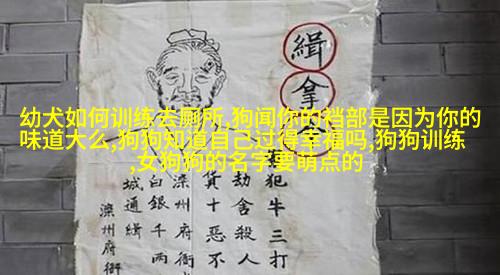 幼犬如何训练去厕所,狗闻你的裆部是因为你的
味道大么,狗狗知道自己过得幸福吗,狗狗训练
,女狗狗的名字要萌点的
緝拿
犯牛三打
劫舍殺人
貨十惡不
滦州府衙
白銀千两
城通緝
滦州府衙